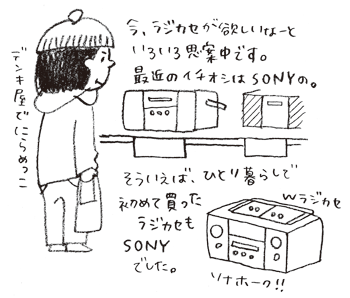 今、ラジカセが欲しいなーと
いろいろ思案中です。
最近のイチオシはSONYの。
デンキ屋でにらめっこ
そういえば、ひとり暮らしで
初めて買った
ラジカセも
SONY
でした。
Wラジカセ
ソナホーク!!